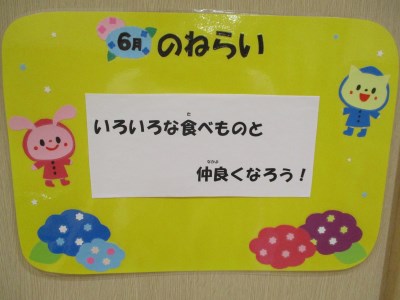 6月のねらい
いろいろな食べものと
仲良くなろう!